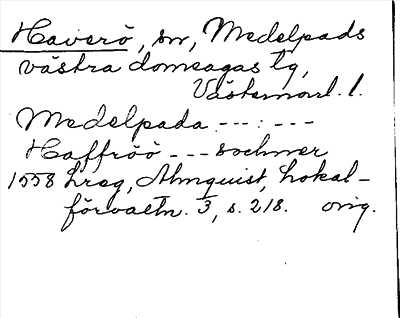 Haverö, sn, Medelpads
västra domsagas tg,
Västernorrl. l.
Medelpada ---:---
Haffröö --- sochner
1558 Lreg, Almquist, Lokal-
förvaltn. 3, s. 218. orig.